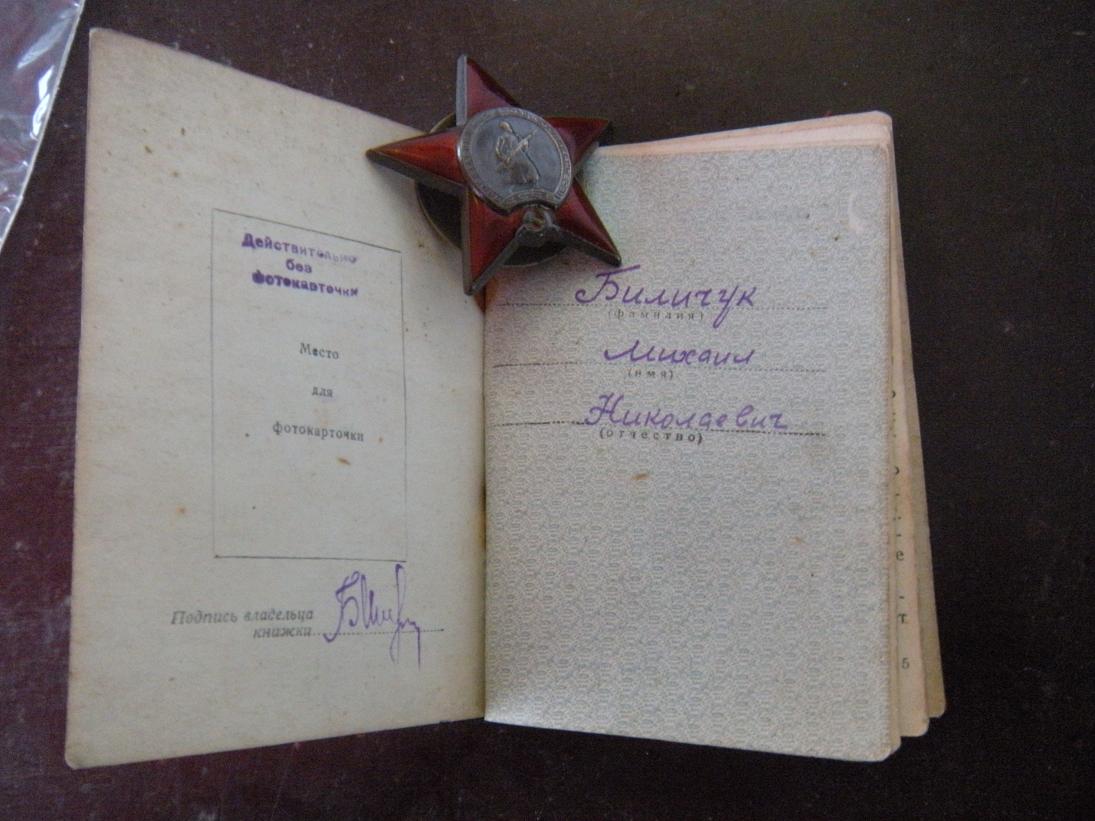 Действительно
без
фотокарточки
Место
для
фотокарточки
Подпись владельца
книжки
Биличук
(фамилия)
Михаил
(имя)
Николаевич
(отчество)
е
-
т
5